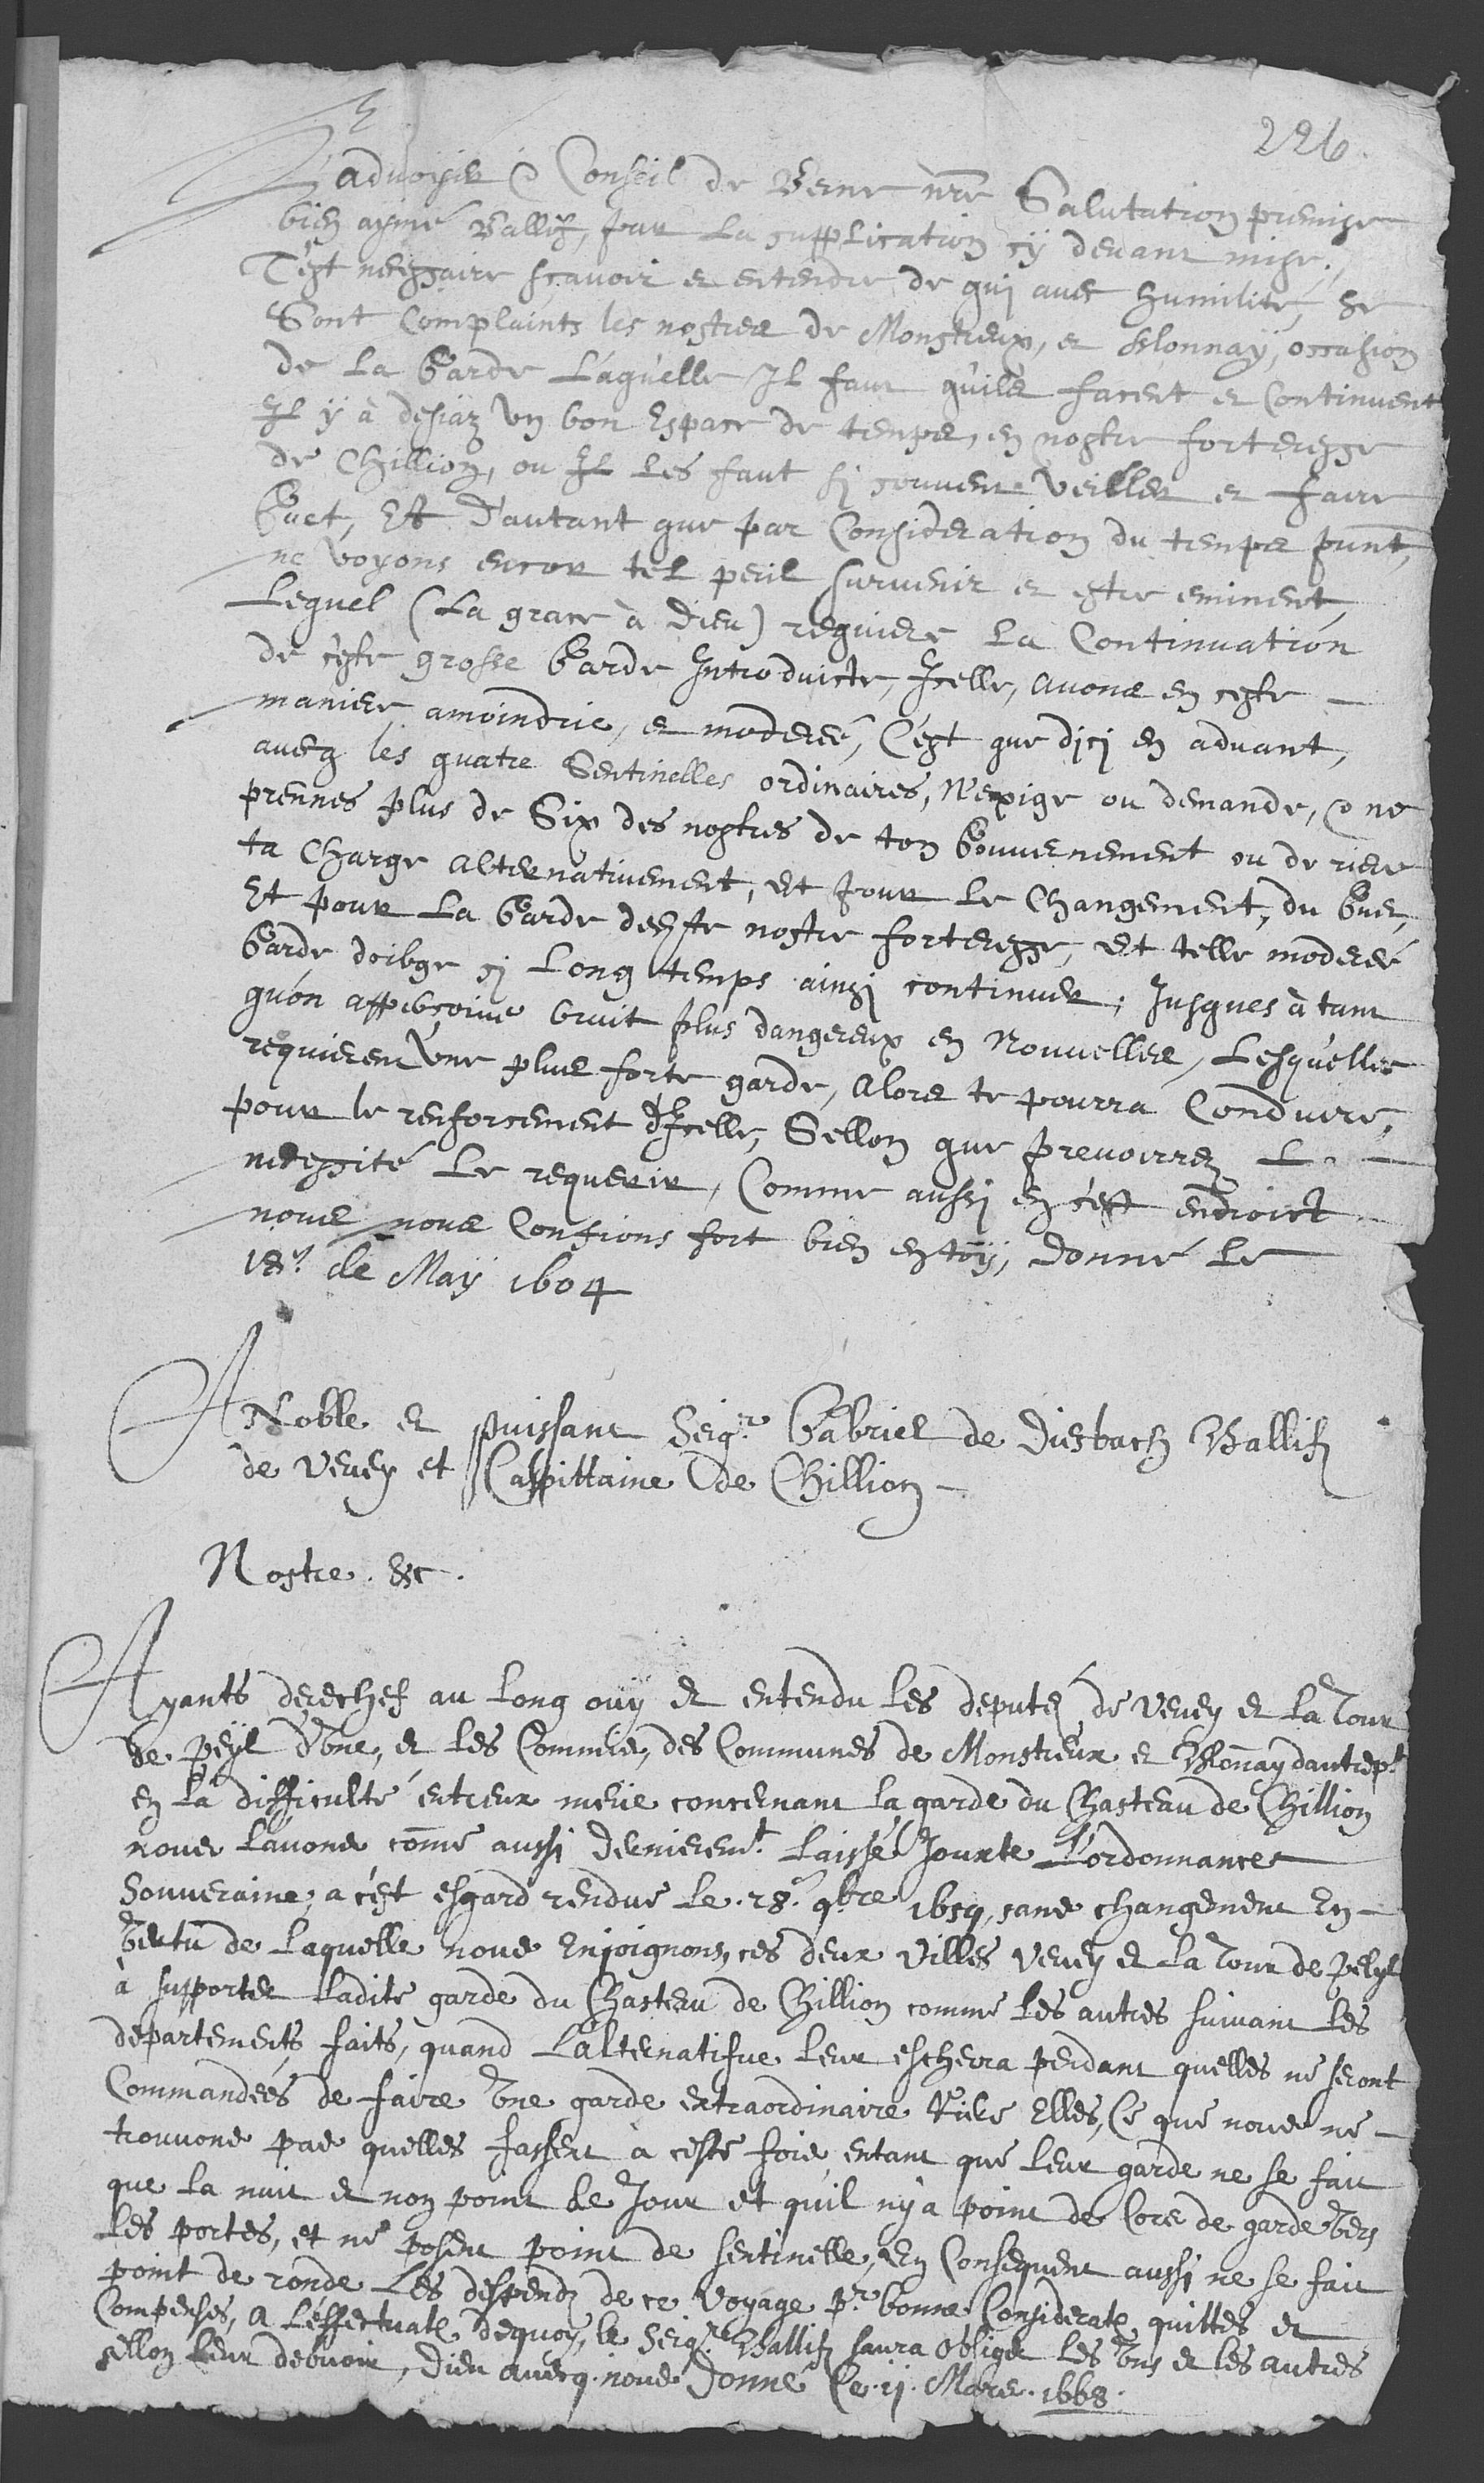 226.
L'advoyer & Conseil de Berne nre Salutation premise
bien aymé Ballif, par la supplication cy devant mise,
T'est necessaire sçavoir et entendre de quj avec humilité, se
Sont Complaints les nostres de Monstreux, et Blonnay, occasion
de La Garde Láquelle Jl faut quils facent et Continuent
Jl ÿ à desiaz vn bon Espace de temps, en nostre forteresse
de Chillion, ou Jl les faut sj souvent veiller et faire
Guet, Et d'autant que par Consideration du temps pnt,
ne voyons encor tel peril survenir et estre eminent,
Lequel (La grace à Dieu) requiere La Continuation
de ceste grosse Garde Introduicte, Jcelle, avons en ceste
maniere amoindrie, et moderé, C'est que djcj en advant,
avecq les quatre Sentinelles ordinaires, N'exige ou demande, & ne
prennes plus de Six des nostres de ton Gouvernement ou de riere
ta Charge alternativement, et pour Le Changement, du Guet,
Et pour La Garde deceste nostre forteresse, et telle moderé
Garde doibge sj Long temps ainsj continuer, Jusques à tant
qu'on appercoive bruit plus dangereux en Nouvelles, Lesquelles
requierent vne plus forte garde, alors te pourra Conduire,
pour le renforcement d'Jcelle, Sellon que prevoirrez La
necessité Le requerir, Comme aussj en c'est endroict
nous nous Confions fort bien en toÿ, Donné Le
18.e de Maÿ 1604
A Noble et puissant Seigr. Gabriel de Diesbach Ballif
de Vevey et Cappittaine de Chillion
Nostre. &c.
Ayants derechef au Long ouy et entendu Les deputez de Vevey et La Tour
de peyl d'vne, et Les Commis, des Communes de Monstreux et Blonay dautrept.
en La difficulté entreux meüe concernant La garde du Chasteau de Chillion
nous Lavons cōme aussi dernieremt. Laissé Jouxte L'ordonnance
Souveraine, a c'est esgard rendue Le .28. 9bre 1659, sans changement En
vertu de Laquelle nous Enjoignons, ces deux villes Vevey et La Tour de Peylz
à supporter Ladite garde du Chasteau de Chillion comme Les autres suivant Les
departements faits, quand L'alternatifve Leur escherra pendant quelles ne seront
Commandées de faire vne garde extraordinaire Riere Elles, Ce que nous ne
trouvons pas quelles fassent à ceste fois, entant que Leur garde ne se fait
que La nuit et non point de Jour et qu'il ny a point de Cors de garde vers
Les portes, et ne posent point de sentinelle, En Consequent aussi ne se fait
point de ronde Les despendz de ce voyage pr. bonne Considerate quittés et
Compensés, A L'effectuate dequoy, le Seigr. Ballif saura obliger Les vns et les autres
sellon Leur debvoir, Dieu avecq nous Donné Ce .ij. Mars. 1668.